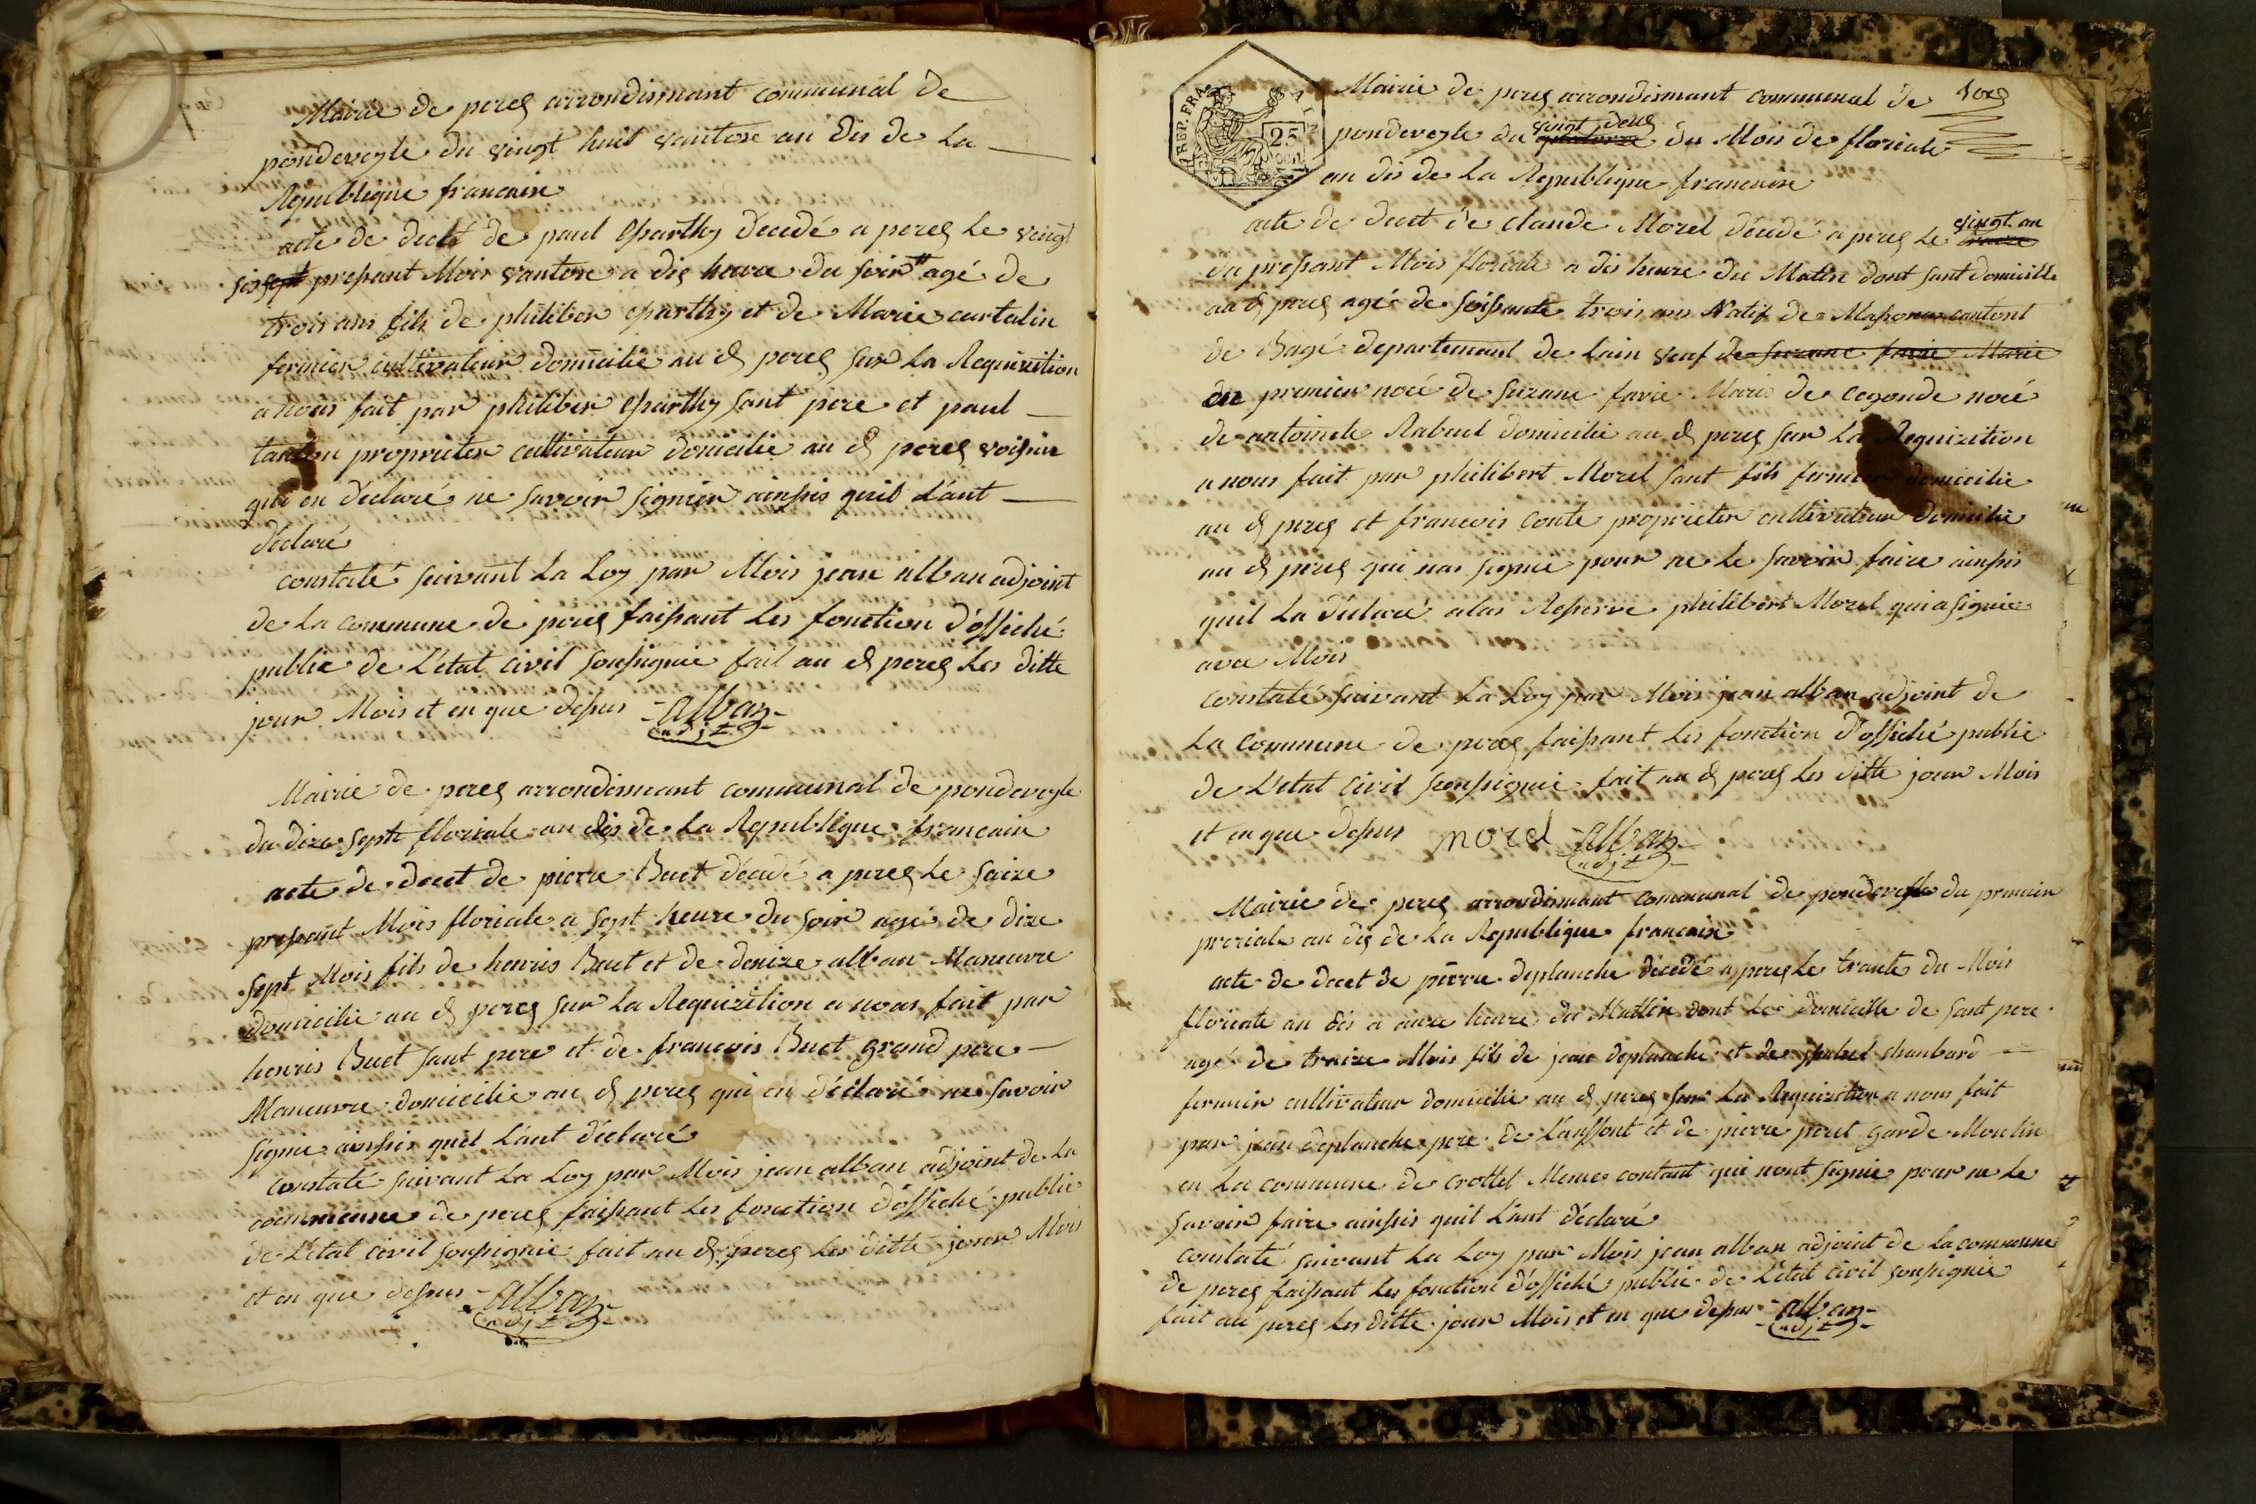 Mairie de perex arrondismant communal de
pondeveyle du vingt huit vantose an dix de La
Republique francaise
acte de decet de paul Charthy décedé a perex Le vingt
six sept presant Mois vantose a dix heure du soir agé de
trois ans fils de philiber Charthy et de Marie curtalin
fermier cultivateur domicilie au d perex sur La Requizition
a nous fait par philiber Charthy sont pere et paul
tardou proprieter cultivateur domicilie au d perex voisin
qui on déclaré ne savoir signier ainssis quil Lant
déclaré
constaté suivant La Loy par Mois jean alban adjoint
de La commune de perex faissant Les fonction d'offiché
public de L'état civil soussignie fait au d perex Les ditte
jour Mois et en que desus alban
adjt
Mairie de perex arrondismant communal de pondeveyle
du dixe septe floriale an dix de La Republique francaise
acte de decet de pierre Buet décedé a perex Le saize
presant Mois floriale a sept heure du soir agé de dixe
sept Mois fils de henris Buet et de denize alban Maneuvre
domicilie au d perex sur La Requizition a nous fait par
henris Buet sont pere et de francois Buet grand pere
Maneuvre domicilie au d perex qui on déclaré ne savoir
signie ainssis quil Lant déclaré
constaté suivant La Loy par Mois jean alban adjoint de La
commeune de perex faissant Les fonction d'offiché public
de L'etat civil soussignie fait au d perex Les ditte jour Mois
et en que desus alban
adjt
Mairie de perex arrondismant communal de
pondeveyle du quatorze vingt deux du Mois de floriale
an dix de La Republique francaise
acte de decet de claude Morel décedé a perex Le traize vingt un
du presant Mois floriale a dix heure du Matin dont sont domicille
au d perex agé de soissante trois ans Natif de cantont
de Bagé departemant de Lain veuf de suzane favie Marie
en premier nocé de suzane favie Maris de cegonde nocé
de antoinete Rabuel domicilie au d perex sur La Requizition
a nous fait par philibert Morel sont fils fermier domicilie
au d perex et francois conte proprieter cultivateur domicilie
au d perex qui nas signie pour ne Le savoir faire ainssis
quil La déclaré alas Reserve philibert Morel qui a signie
avec Mois
constaté suivant La Loy par Mois jean alban adjoint de
La commune de perex faissant Les fonction d'offiché public
de L'etat civil soussignie fait au d perex Les ditte jour Mois
et en que desus morel alban
adjt
Mairie de perex arrondismant communal de pondevelle du premier
preriale an dix de La Republique francaise
acte de decet de pierre deplanche décedé a perex Le trante du Mois
floriale an dix a onze heure du Mattin dont Le domicille de sont pere
agé de traize Mois fils de jean deplanche et de chanbard
fermier cultivateur domicilie au d perex sur La Requizition a nous fait
par jean deplanche pere de L'anffent et de pierre peret garde Moulin
en La commune de crottet Meme contant qui nont signie pour ne Le
savoir faire ainssis quil L'ant déclaré
constaté suivant La Loy par Mois jean alban adjoint de La commune
de perex faissant Les fonction d'offiché public de L'etat civil soussignie
fait au perex Les ditte jour Mois et en que desus alban
adjt